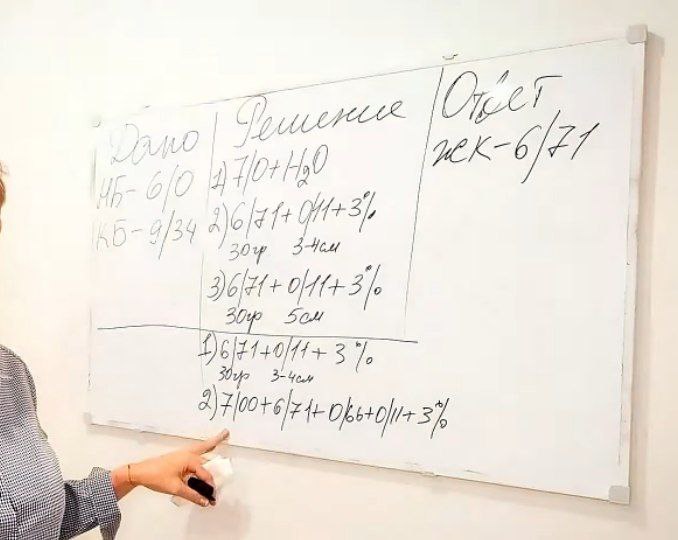 Дано
НБ- 6/0
КБ- 9/34
Решение
1) 7/0+H₂O
2) 6/71+0/11+3%
30гр 3-4см
3) 6/71+0/11+3%
30гр 5см
1) 6/71+0/11+3%
30гр 3-4см
2) 7/00+6/71+0/66+0/11+3%
Ответ
жК-6/71